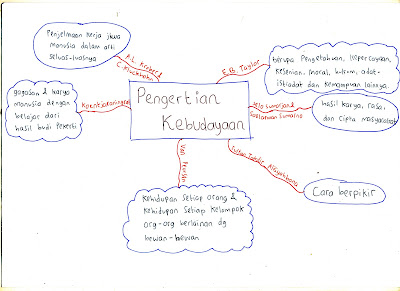 Penjelmaan kerja jiwa
manusia dalam arti
seluas-luasnya
A.L. Krober &
C. Kluckhohn
E.B. Taylor
berupa Pengetahuan, kepercayaan,
Kesenian, moral, hukum, adat-
istiadat dan Kemampuan lainnya.
gagasan & karya
manusia dengan
belajar dari
hasil budi Pekerti
Koentjaraningrat
Pengertian
Kebudayaan
Selo Sumarjan &
Soelarman Sumarno
hasil karya, rasa,
dan Cipta masyarakat
Van Peursen
Sultan Takdir Alisyahbana
Cara berpikir
Kehidupan Setiap orang &
Kehidupan Setiap Kelompok
org-org berlainan dg
hewan-hewan